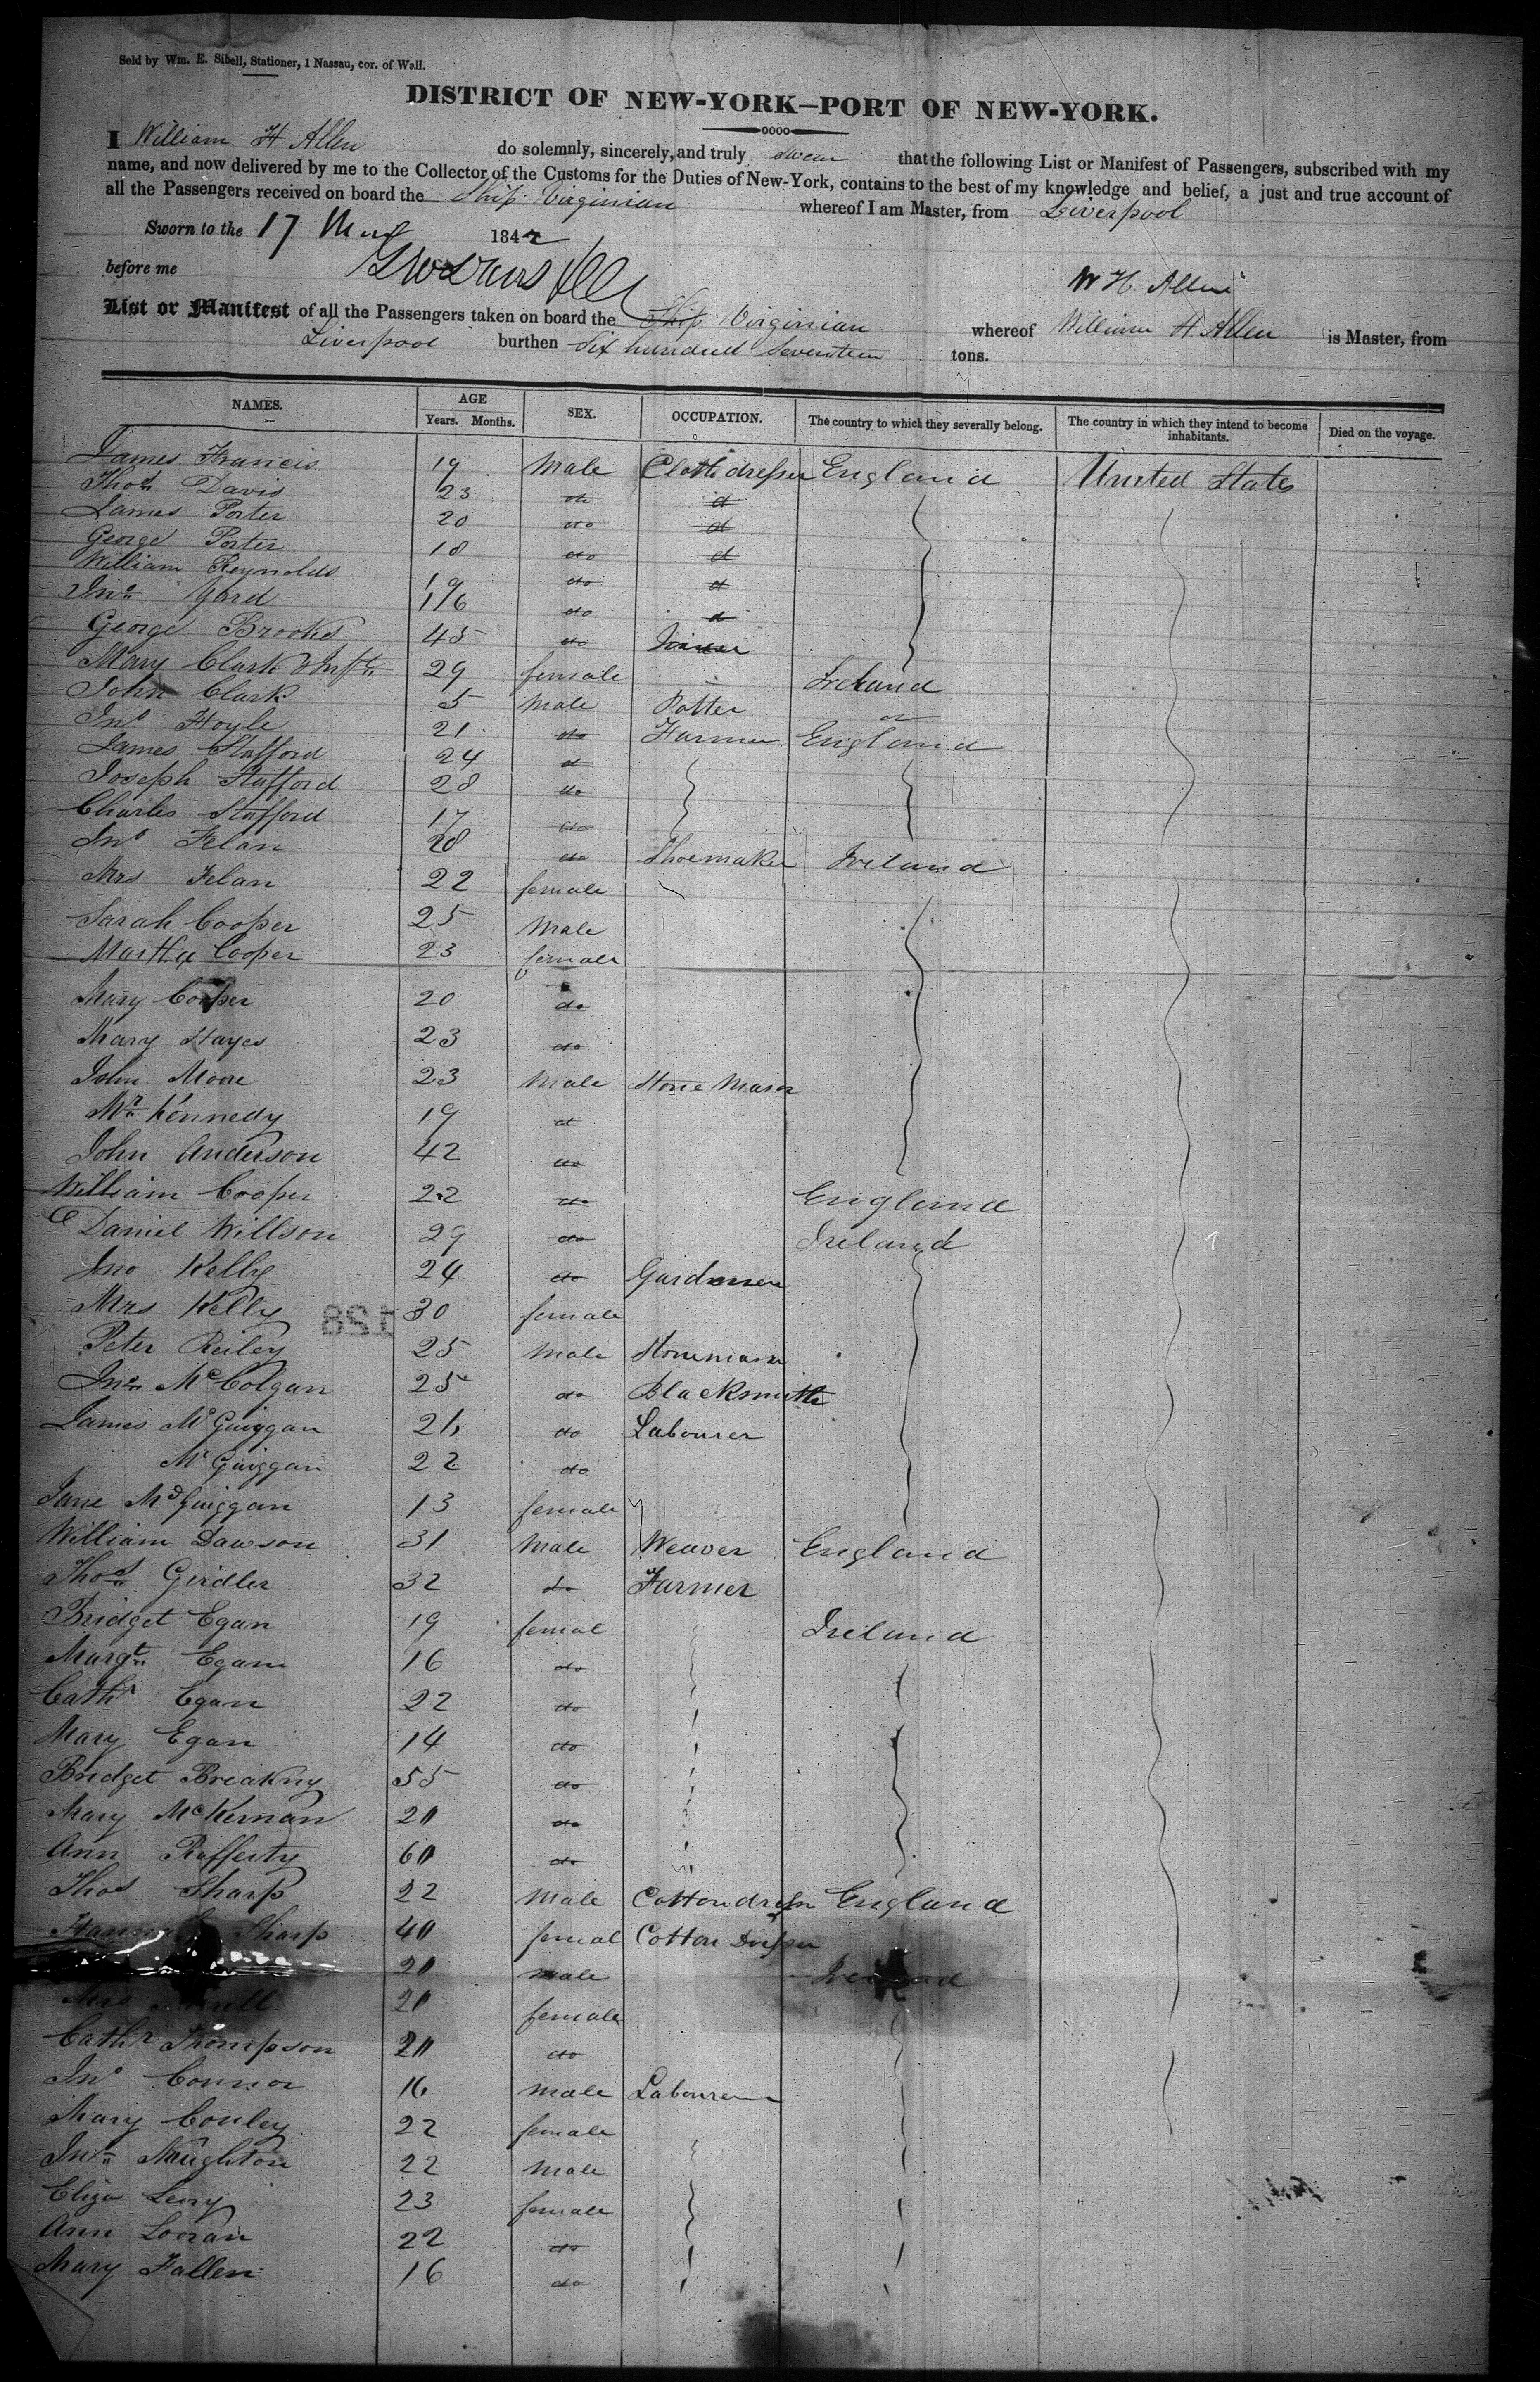 Sold by Wm. E. Sibell, Stationer, 1 Nassau, cor. of Wall.
DISTRICT OF NEW-YORK—PORT OF NEW-YORK.
I William H Allen do solemnly, sincerely, and truly swear that the following List or Manifest of Passengers, subscribed with my
name, and now delivered by me to the Collector of the Customs for the Duties of New-York, contains to the best of my knowledge and belief, a just and true account of
all the Passengers received on board the Ship Virginian whereof I am Master, from Liverpool
Sworn to the 17 1842
before me W H Allen
List or Manifest of all the Passengers taken on board the Ship Virginian whereof William H Allen is Master, from
Liverpool burthen Six hundred Seventeen tons.
NAMES. AGE Years. Months. SEX. OCCUPATION. The country to which they severally belong. The country in which they intend to become inhabitants. Died on the voyage.
James Francis 19 Male Cloth dresser England United States
Thos Davis 23 do d
James Porter 20 do d
George Porter 18 do d
William Reynolds 19 do d
Jno Yard 16 do d
George Brooks 45 do
Mary Clark & Inft 29 female Ireland
John Clark 5 Male Potter do
Jno Hoyle 21 do Farmer England
James Stafford 24 d
Joseph Stafford 28 do
Charles Stafford 17 do
Jno Felan 28 do Shoemaker Ireland
Mrs Felan 22 female
Sarah Cooper 25 Male
Martha Cooper 23 female
Mary Cooper 20 do
Mary Hayes 23 do
John Moore 23 Male Stone Mason
Mr Kennedy 19 d
John Anderson 42 do
William Cooper 22 do England
Daniel Willson 29 do Ireland
Jno Kelly 24 do Gardener
Mrs Kelly 30 female
128
Peter Reiley 25 Male Stonemason
Jno McColgan 25 do Blacksmith
James McGuiggan 21 do Labourer
McGuiggan 22 do
Jane McGuiggan 13 female
William Dawson 31 Male Weaver England
Thos Girdler 32 do Farmer
Bridget Egan 19 femal Ireland
Margt Egan 16 do
Cathr Egan 22 do
Mary Egan 14 do
Bridget Breakny 55 do
Mary McKernan 20 do
Ann Rafferty 60 do
Thos Sharp 22 Male Cotton dresser England
Sharp 40 femal Cotton Dresser
20 male Ireland
Mrs 20 female
Cathr Thompson 20 do
Jno Connor 16 Male Labourer
Mary Conley 22 female
Jno Naughton 22 Male
Eliza Levy 23 female
Ann Looran 22 do
Mary Fallen 16 do